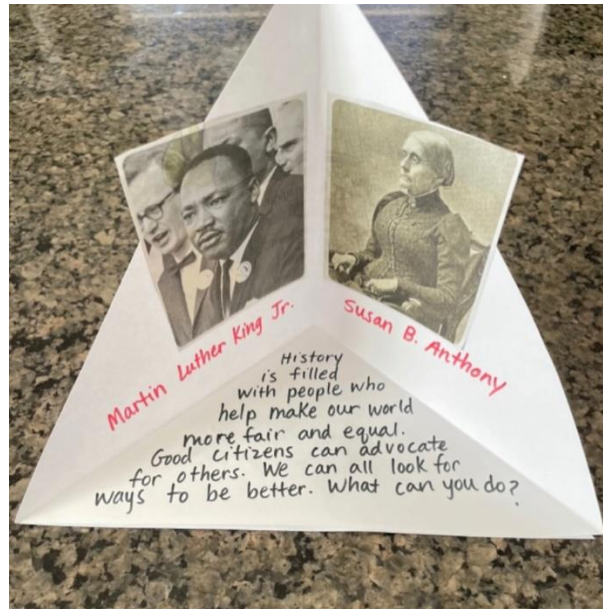 Martin Luther King Jr.
Susan B. Anthony
History
is filled
with people who
help make our world
more fair and equal.
Good citizens can advocate
for others. We can all look for
ways to be better. What can you do?